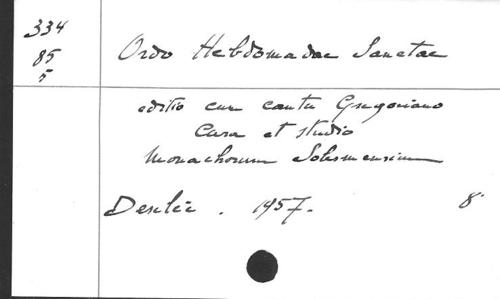 334
85
5
Ordo Hebdomadae Sanctae
editio cum cantu Gregoriano
Cura et studio
Monachorum Solesmensium
Desclée . 1957. 8°